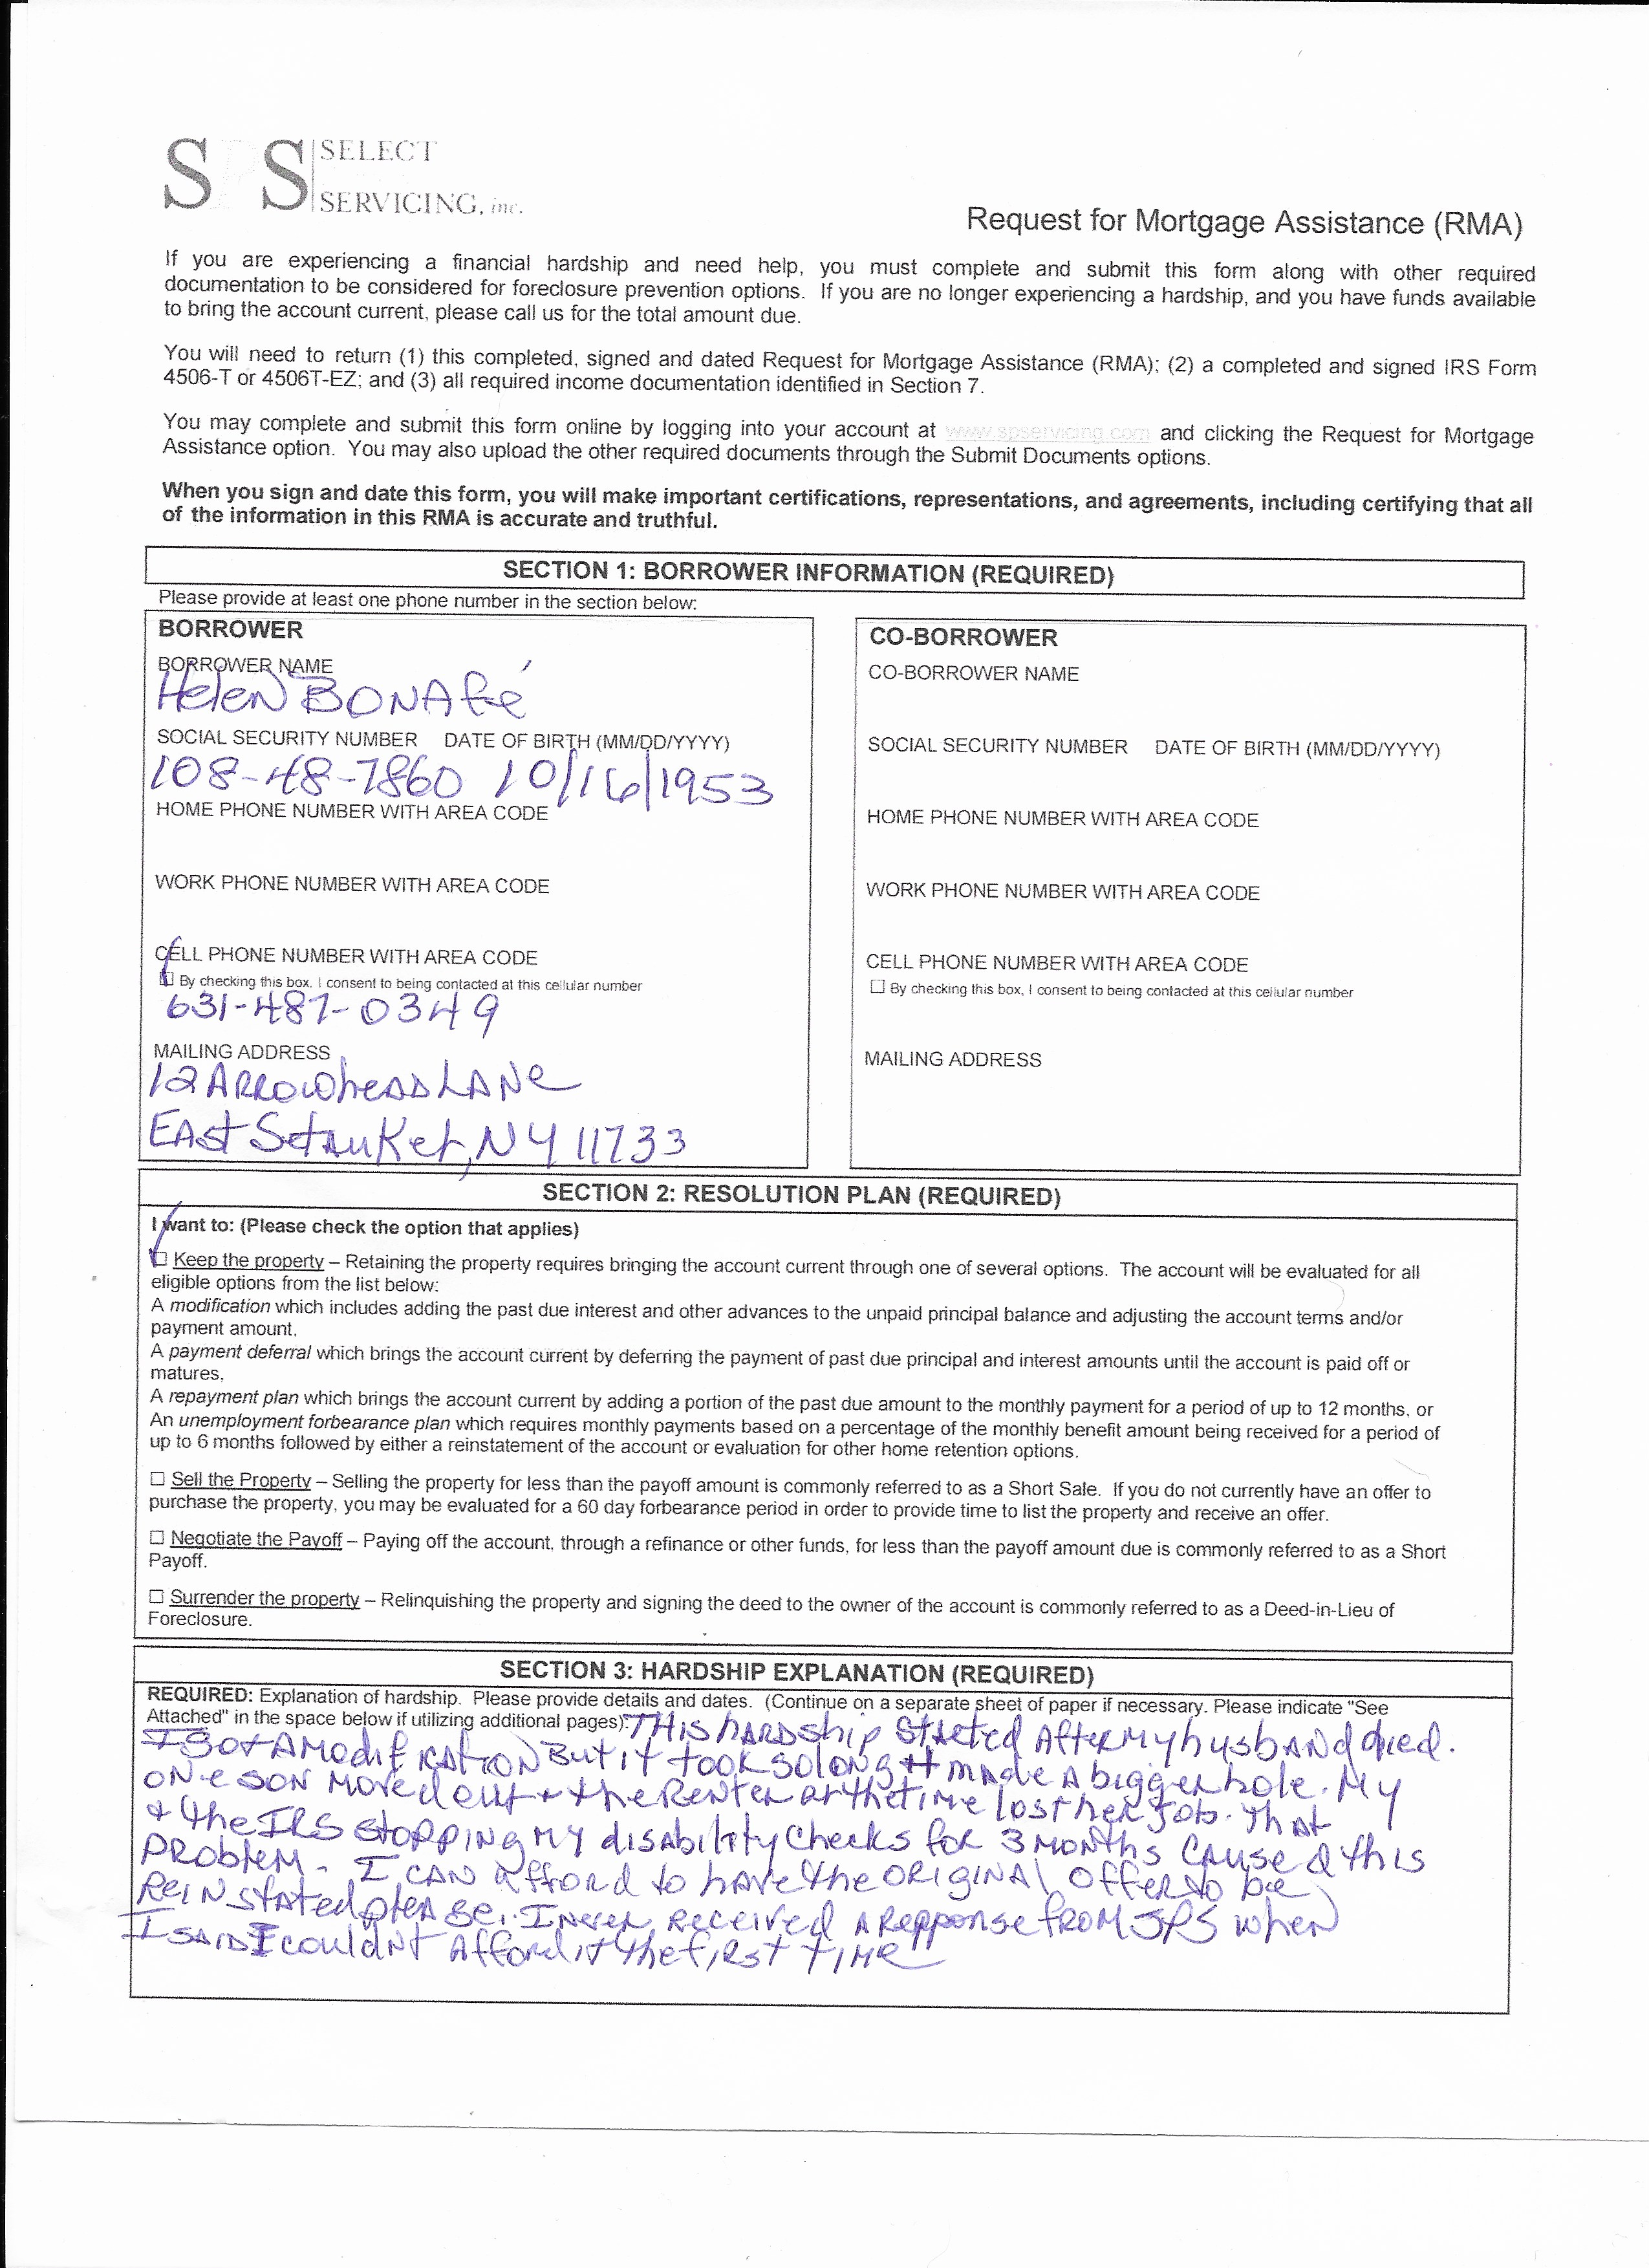 SPS SELECT
SERVICING, inc.
Request for Mortgage Assistance (RMA)
If you are experiencing a financial hardship and need help, you must complete and submit this form along with other required
documentation to be considered for foreclosure prevention options. If you are no longer experiencing a hardship, and you have funds available
to bring the account current, please call us for the total amount due.
You will need to return (1) this completed, signed and dated Request for Mortgage Assistance (RMA); (2) a completed and signed IRS Form
4506-T or 4506T-EZ; and (3) all required income documentation identified in Section 7.
You may complete and submit this form online by logging into your account at www.spservicing.com and clicking the Request for Mortgage
Assistance option. You may also upload the other required documents through the Submit Documents options.
When you sign and date this form, you will make important certifications, representations, and agreements, including certifying that all
of the information in this RMA is accurate and truthful.
SECTION 1: BORROWER INFORMATION (REQUIRED)
Please provide at least one phone number in the section below:
BORROWER
BORROWER NAME
Helen BONAFé
SOCIAL SECURITY NUMBER DATE OF BIRTH (MM/DD/YYYY)
108-48-7860 10/16/1953
HOME PHONE NUMBER WITH AREA CODE
WORK PHONE NUMBER WITH AREA CODE
CELL PHONE NUMBER WITH AREA CODE
☐ By checking this box, I consent to being contacted at this cellular number
631-487-0349
MAILING ADDRESS
12 ARROWheAD LANe
EAst SetAuKet, NY 11733
CO-BORROWER
CO-BORROWER NAME
SOCIAL SECURITY NUMBER DATE OF BIRTH (MM/DD/YYYY)
HOME PHONE NUMBER WITH AREA CODE
WORK PHONE NUMBER WITH AREA CODE
CELL PHONE NUMBER WITH AREA CODE
☐ By checking this box, I consent to being contacted at this cellular number
MAILING ADDRESS
SECTION 2: RESOLUTION PLAN (REQUIRED)
I want to: (Please check the option that applies)
☐ Keep the property – Retaining the property requires bringing the account current through one of several options. The account will be evaluated for all
eligible options from the list below:
A modification which includes adding the past due interest and other advances to the unpaid principal balance and adjusting the account terms and/or
payment amount,
A payment deferral which brings the account current by deferring the payment of past due principal and interest amounts until the account is paid off or
matures,
A repayment plan which brings the account current by adding a portion of the past due amount to the monthly payment for a period of up to 12 months, or
An unemployment forbearance plan which requires monthly payments based on a percentage of the monthly benefit amount being received for a period of
up to 6 months followed by either a reinstatement of the account or evaluation for other home retention options.
☐ Sell the Property – Selling the property for less than the payoff amount is commonly referred to as a Short Sale. If you do not currently have an offer to
purchase the property, you may be evaluated for a 60 day forbearance period in order to provide time to list the property and receive an offer.
☐ Negotiate the Payoff – Paying off the account, through a refinance or other funds, for less than the payoff amount due is commonly referred to as a Short
Payoff.
☐ Surrender the property – Relinquishing the property and signing the deed to the owner of the account is commonly referred to as a Deed-in-Lieu of
Foreclosure.
SECTION 3: HARDSHIP EXPLANATION (REQUIRED)
REQUIRED: Explanation of hardship. Please provide details and dates. (Continue on a separate sheet of paper if necessary. Please indicate "See
Attached" in the space below if utilizing additional pages): THis hARDship stARted AfteR My husbAND died.
I Got A ModificAtioN But it took so loNg it made A biggeR hole. My
oNe soN Moved out + the ReNteR at the tiMe lost heR Job. ThAt
+ the IRS stoppiNg My disability Checks foR 3 MoNths CAused this
PRobleM. I CAN AffoRd to hAve the ORIGINAl offeR to be
ReiNstAted pleAse. I NeveR Received A Repponse fROM SPS wheN
I sAid I couldNt AffoRd it the fiRst tiMe